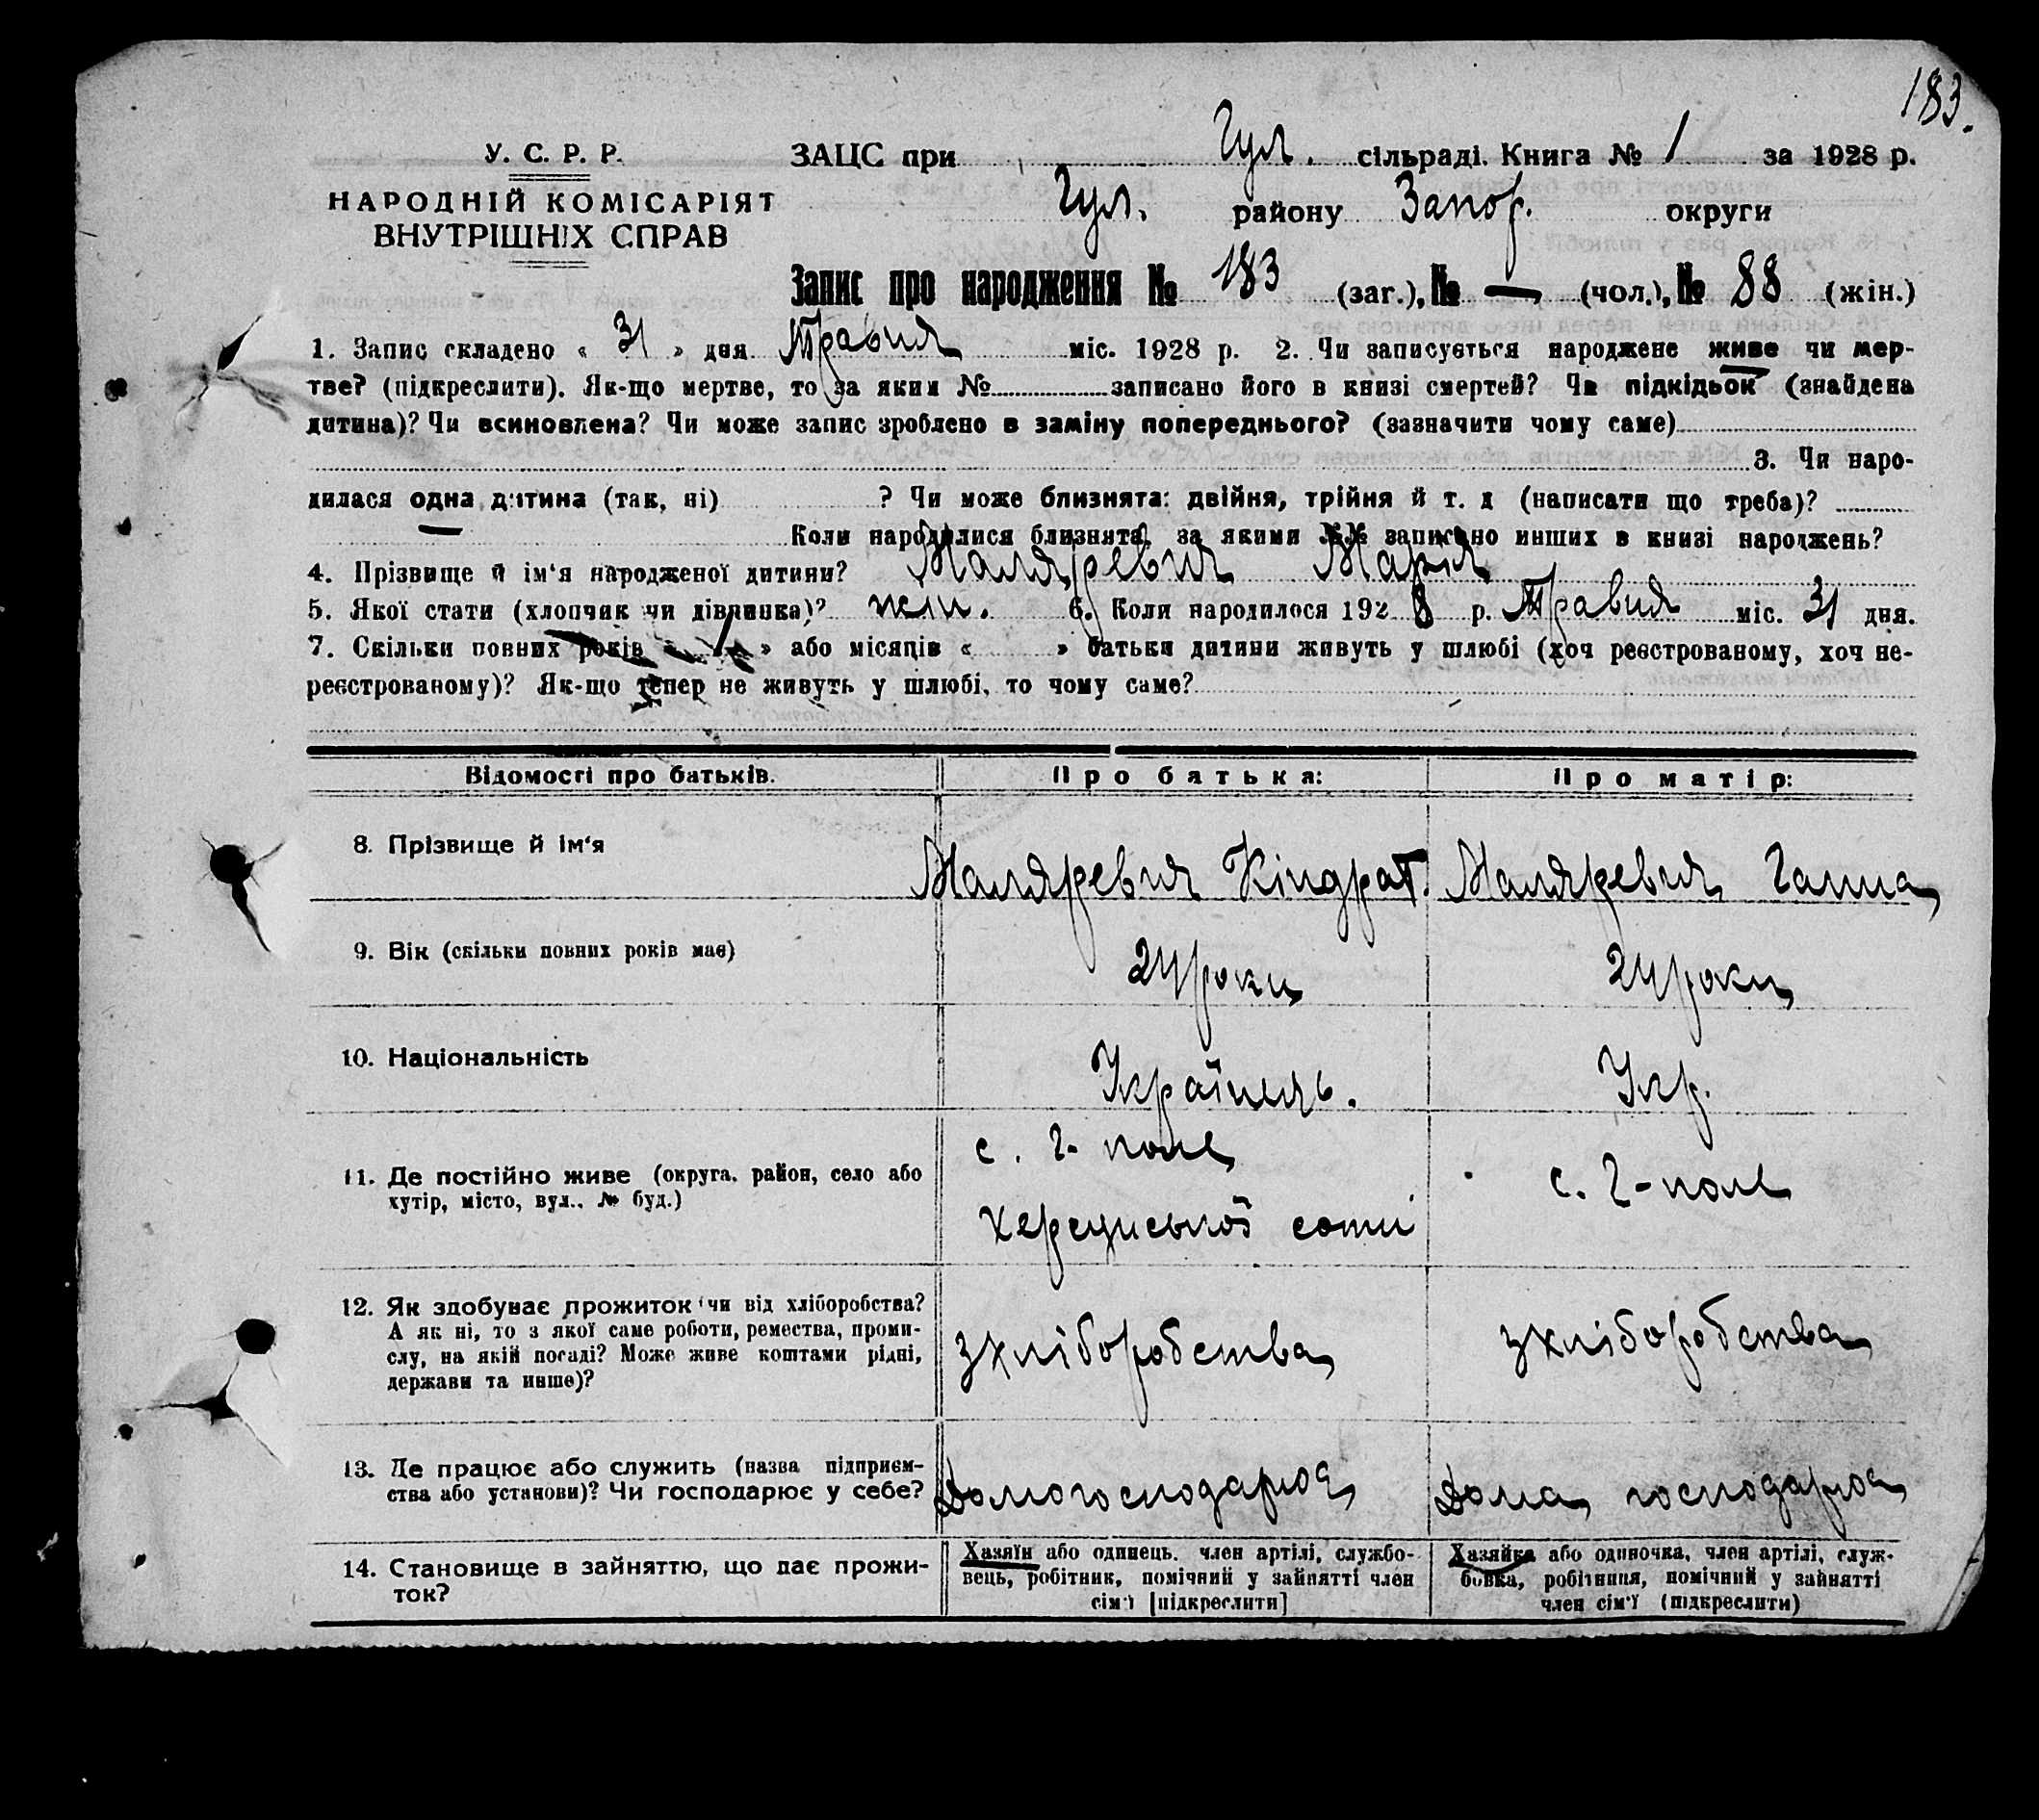 183.
У. С. Р. Р.
НАРОДНІЙ КОМІСАРІЯТ
ВНУТРІШНІХ СПРАВ
ЗАЦС при Гул. сільраді. Книга № 1 за 1928 р.
Гул. району Запор. округи
Запис про народження № 183 (заг.), № — (чол.), № 88 (жін.)
1. Запис складено « 31 » дня Травня міс. 1928 р. 2. Чи записується народжене живе чи мер-
тве? (підкреслити). Як-що мертве, то за яким № записано його в книзі смертей? Чи підкідьок (знайдена
дитина)? Чи всиновлена? Чи може запис зроблено в заміну попереднього? (зазначити чому саме)
3. Чи наро-
дилася одна дитина (так, ні) ? Чи може близнята: двійня, трійня й т. д (написати що треба)?
Коли народилися близнята, за якими №№ записано инших в книзі народжень?
4. Прізвище й ім'я народженої дитини? Маляревич Марія
5. Якої стати (хлопчик чи дівчинка)? жін. 6. Коли народилося 1928 р. Травня міс. 31 дня.
7. Скільки повних років « 1 » або місяців « » батьки дитини живуть у шлюбі (хоч реєстрованому, хоч не-
реєстрованому)? Як-що тепер не живуть у шлюбі, то чому саме?
Відомості про батьків. Про батька: Про матір:
8. Прізвище й ім'я Маляревич Кіндрат. Маляревич Ганна
9. Вік (скільки повних років має) 24 роки 24 роки
10. Національність Українець. Укр.
11. Де постійно живе (округа, район, село або
хутір, місто, вул., № буд.)
с. Г-поле
Херсунської сотні
с. Г-поле
12. Як здобуває прожиток чи від хліборобства?
А як ні, то з якої саме роботи, ремества, проми-
слу, на якій посаді? Може живе коштами рідні,
держави та инше)?
з хліборобства з хліборобства
13. Де працює або служить (назва підприєм-
ства або установи)? Чи господарює у себе?
Дома господарює Дома господарює
14. Становище в зайняттю, що дає прожи-
ток?
Хазяїн або одинець, член артілі, службо-
вець, робітник, помічний у зайнятті член
сім'ї [підкреслити]
Хазяйка або одиночка, член артілі, служ-
бовка, робітниця, помічний у зайнятті
член сім'ї (підкреслити)